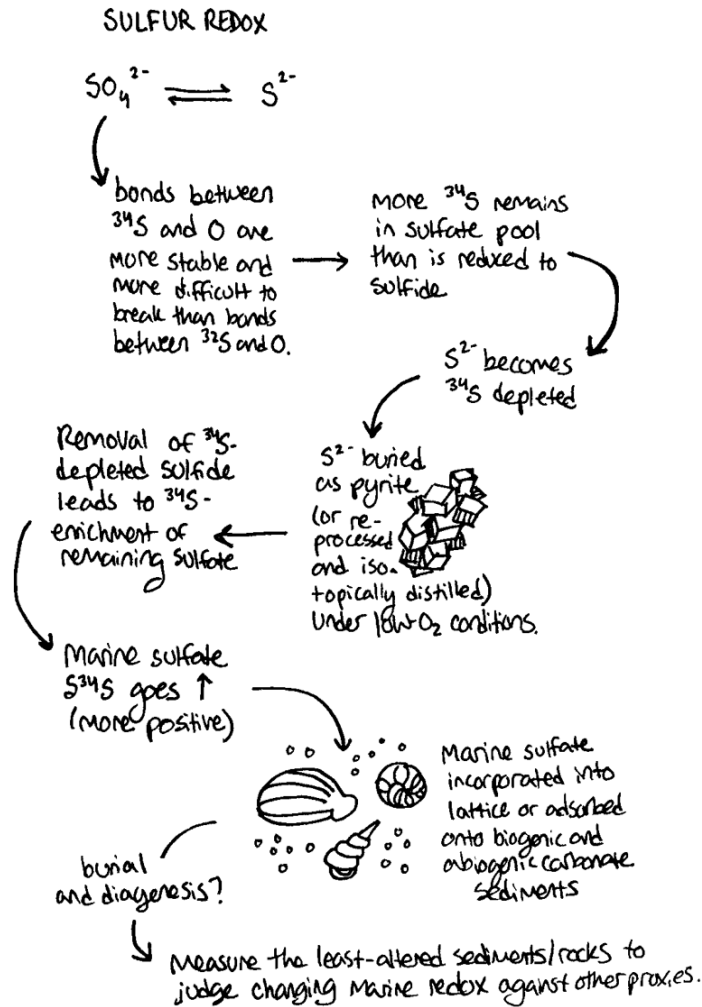 SULFUR REDOX
SO₄²⁻ ⇌ S²⁻
bonds between
³⁴S and O are
more stable and
more difficult to
break than bonds
between ³²S and O.
more ³⁴S remains
in sulfate pool
than is reduced to
sulfide
S²⁻ becomes
³⁴S depleted
S²⁻ buried
as pyrite
(or re-
processed
and iso-
topically distilled)
under low-O₂ conditions.
Removal of ³⁴S-
depleted sulfide
leads to ³⁴S-
enrichment of
remaining sulfate
Marine sulfate
δ³⁴S goes ↑
(more positive)
Marine sulfate
incorporated into
lattice or adsorbed
onto biogenic and
abiogenic carbonate
sediments
burial
and diagenesis?
Measure the least-altered sediments/rocks to
judge changing marine redox against other proxies.